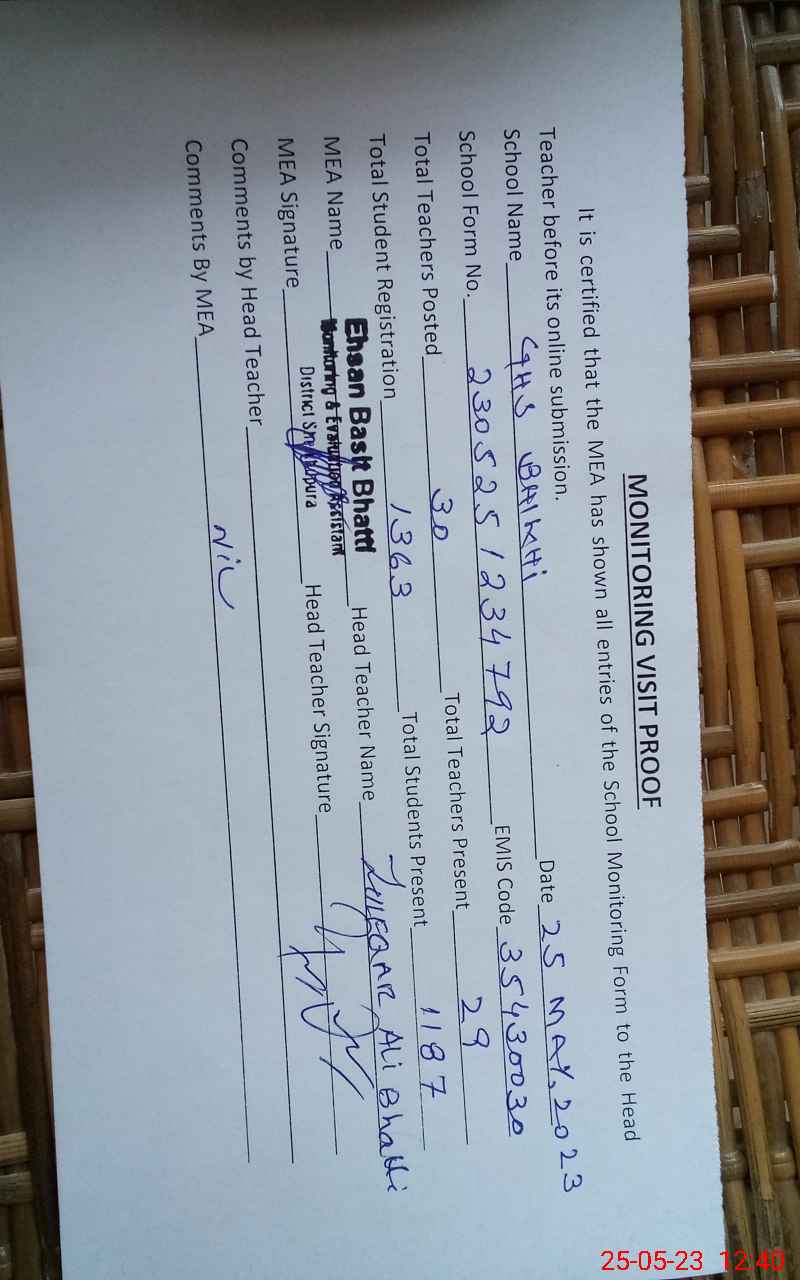 MONITORING VISIT PROOF
It is certified that the MEA has shown all entries of the School Monitoring Form to the Head
Teacher before its online submission.
School Name GHS BHIKHI Date 25 MAY, 2023
School Form No. 2305251234792 EMIS Code 35430030
Total Teachers Posted 30 Total Teachers Present 29
Total Student Registration 1363 Total Students Present 1187
MEA Name Ehsan Basit Bhatti Head Teacher Name ZULFQAR ALi Bhatti
Monitoring & Evaluation Assistant
District Sheikhupura
MEA Signature Head Teacher Signature
Comments by Head Teacher
Comments By MEA NiL
25-05-23 12:40